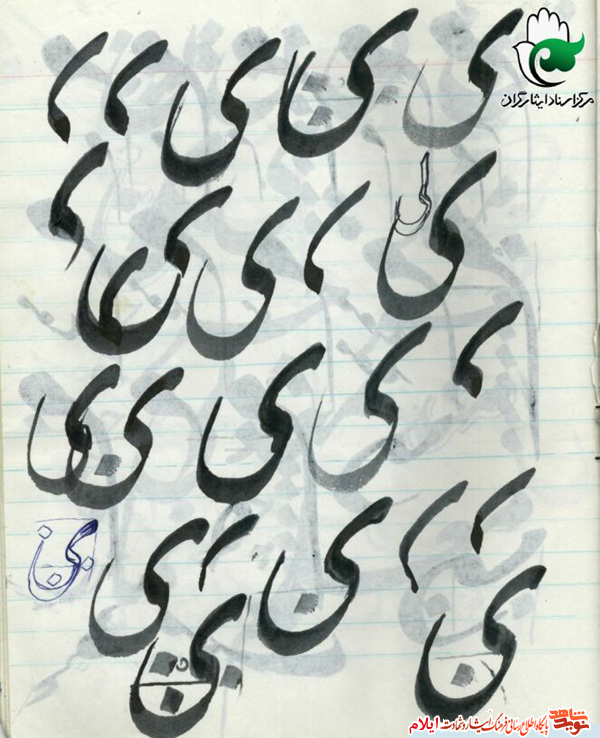 مرکز اسناد ایثارگران
ی ی ی
ی ی ی
ی ی ی ی
ی ی ی
ی ی
نوید شاهد پایگاه اطلاع رسانی فرهنگ ایثار و شهادت ایلام